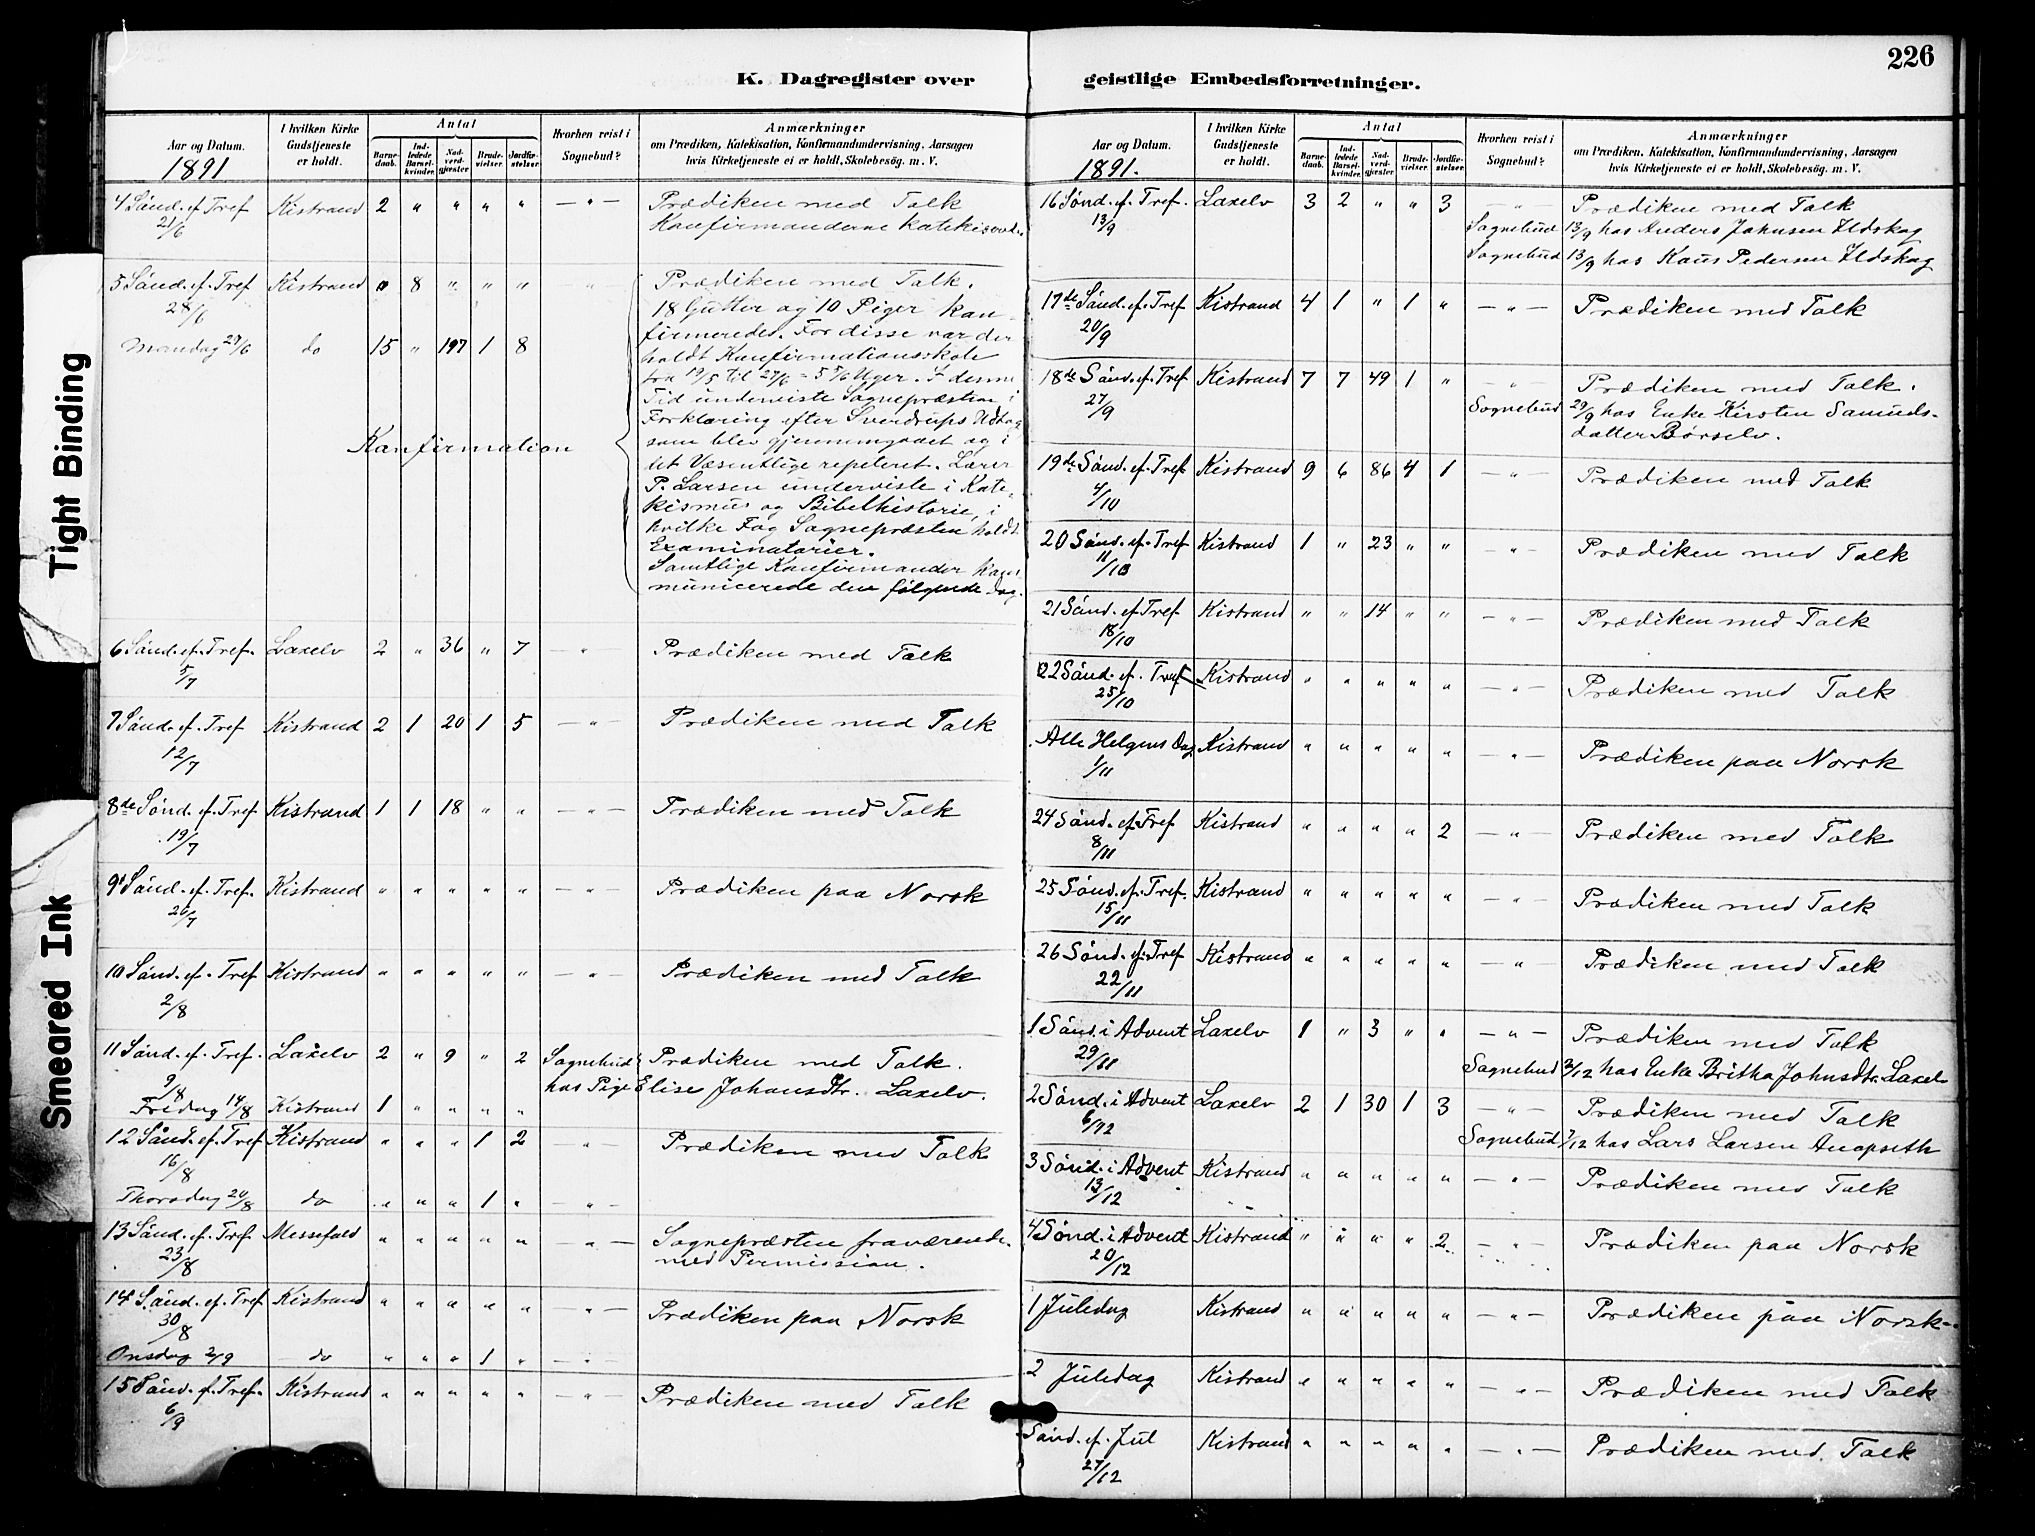 226
K. Dagregister over geistlige Embedsforretninger.
Tight Binding
Smeared Ink
Aar og Datum. I hvilken Kirke Gudstjeneste er holdt. Antal Barnedaab. Indledede Barselkvinder. Nadverdgjæster Brudevielser Jordfæstelser. Hvorhen reist i Sognebud? Anmærkninger
om Prædiken, Katekisation, Konfirmandundervisning, Aarsagen
hvis Kirketjeneste ei er holdt, Skolebesøg. m. V.
1891
4 Sønd. ef. Tref Kistrand 2 " " " " — " — Prædiken med Tolk
21/6 Konfirmanderne
5 Sønd. ef. Tref Kistrand " 8 " " " " Prædiken med Tolk.
28/6 18 Gutter og 10 Piger kon-
Mandag do 15 " 197 1 8 firmeredes. For disse var der
holdt Konfirmationsskole
fra 19/5 til 27/6 = 5 5/6 Uger. I denne
Tid underviste Sognepræsten i
Forklaring efter Sverdrups Udtog
Konfirmation som blev gjennemgaaet og i
det Væsentlige repeteret. Lærer
P. Larsen underviste i Kate-
kismus og Bibelhistorie, i
hvilke Fag Sognepræsten holdt
Examinatorier.
Samtlige Konfirmander kom-
municerede den følgende Dag.
6 Sønd. ef. Tref. Laxelv 2 " 36 " 7 — " Prædiken med Tolk
5/7
7 Sønd. ef. Tref Kistrand 2 1 20 1 5 — " — Prædiken med Tolk
12/7
8de Sønd. ef. Tref Kistrand 1 1 18 " " — " — Prædiken med Tolk
19/7
9d Sønd. ef. Tref. Kistrand " " " " " — " — Prædiken paa Norsk
26/7
10 Sønd. ef. Tref Kistrand " " " " " — " — Prædiken med Tolk
2/8
11 Sønd. ef. Tref. Laxelv 2 " 9 " 2 Sognebud Prædiken med Tolk.
9/8 hos Pige Elise Johansdtr. Laxelv.
Fredag 14/8 Kistrand 1 " " " "
12 Sønd. ef. Tref Kistrand " " " 1 2 " Prædiken med Tolk
16/8
Thorsdag 20/8 do " " " 1 " — " —
13 Sønd. ef. Tref Messefald " " " " " — " — Sognepræsten fraværende
23/8 med Permission.
14 Sønd. ef. Tref Kistrand " " " " " " — Prædiken paa Norsk
30/8
Onsdag 2/9 — do " " " 1 " — " —
15 Sønd. ef. Tref. Kistrand " " " " " — " — Prædiken med Tolk
6/9
Aar og Datum. I hvilken Kirke Gudstjeneste er holdt. Antal Barnedaab. Indledede Barselkvinder. Nadverdgjæster Brudevielser Jordfæstelser. Hvorhen reist i Sognebud? Anmærkninger
om Prædiken, Katekisation, Konfirmandundervisning, Aarsagen
hvis Kirketjeneste ei er holdt, Skolebesøg. m. V.
1891.
16 Sønd. ef. Tref. Laxelv 3 2 " " 3 — " — Prædiken med Tolk
13/9 Sognebud 13/9 hos Anders Johnsen Ildskog
Sognebud 13/9 hos Pedersen Ildskog
17de Sønd. ef. Tref Kistrand 4 1 " 1 " — " — Prædiken med Tolk
20/9
18de Sønd. ef. Tref Kistrand 7 7 49 1 " — " — Prædiken med Tolk.
27/9 Sognebud 29/9 hos Enke Kirsten Samuels-
datter Børselv.
19de Sønd. ef. Tref. Kistrand 9 6 86 4 1 — " — Prædiken med Tolk
4/10
20 Sønd. ef. Tref Kistrand 1 " 23 " " " — Prædiken med Tolk
11/10
21 Sønd. ef. Tref Kistrand " " 14 " " — " — Prædiken med Tolk
18/10
22 Sønd. ef. Tref Kistrand " " " " " — " — Prædiken med Tolk
25/10
Alle Helgens Dag Kistrand " " " " " — " — Prædiken paa Norsk
1/11
24 Sønd. ef. Tref Kistrand " " " " 2 — " — Prædiken med Tolk
8/11
25 Sønd. ef. Tref. Kistrand " " " " " — " — Prædiken med Tolk
15/11
26 Sønd. ef. Tref Kistrand " " " " " — " — Prædiken med Tolk
22/11
1 Sønd. i Advent Laxelv 1 " 3 " " — " — Prædiken med Tolk
29/11 Sognebud 2/12 hos Enke Britha Johnsdtr. Laxelv
2 Sønd. i Advent Laxelv 2 1 30 1 3 — " — Prædiken med Tolk
6/12 Sognebud 7/12 hos Lars Larsen
3 Sønd. i Advent Kistrand " " " " " — " — Prædiken med Tolk
13/12
4 Sønd. i Advent Kistrand " " " " 2 — " — Prædiken paa Norsk
20/12
1 Juledag Kistrand " " " " " — " — Prædiken paa Norsk
2 Juledag Kistrand " " " " " — " — Prædiken med Tolk
Sønd. ef. Jul Kistrand " " " " " — " — Prædiken med Tolk
27/12